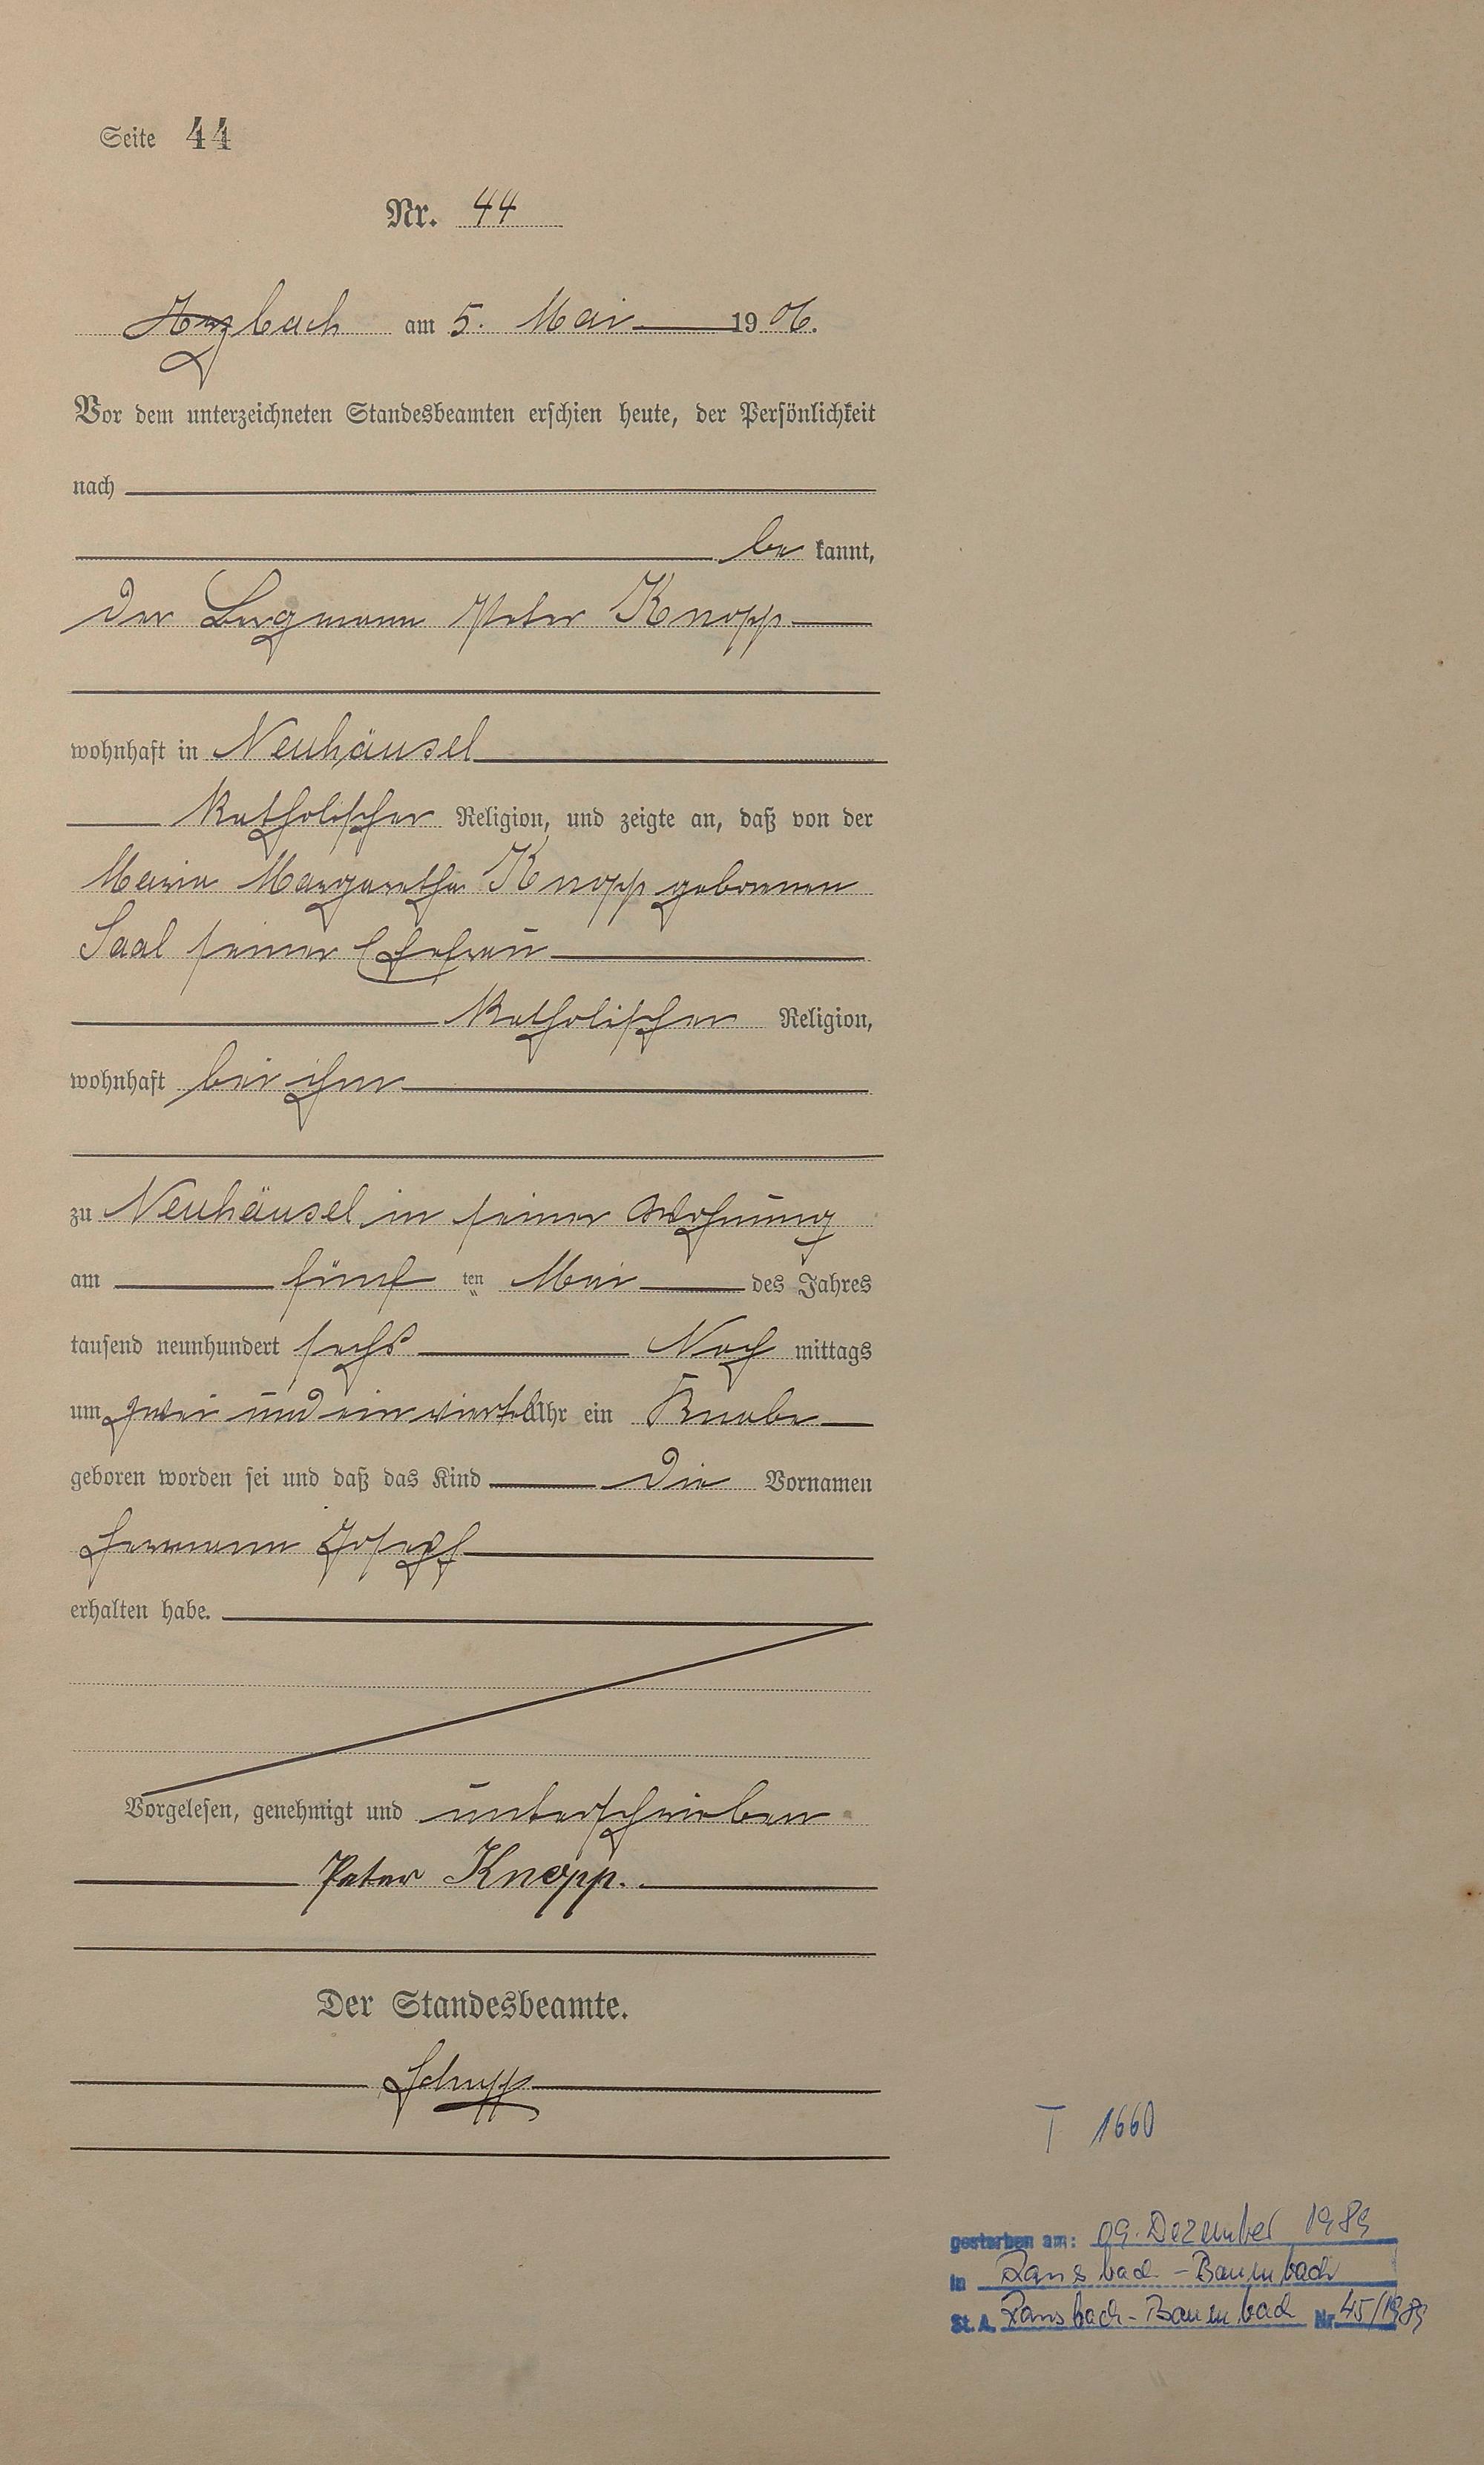 Seite 44
Nr. 44
Arzbach am 5. Mai 1906.
Vor dem unterzeichneten Standesbeamten erschien heute, der Persönlichkeit
nach
be kannt,
der Bergmann Peter Knopp
wohnhaft in Neuhäusel
katholischer Religion, und zeigte an, daß von der
Maria Margaretha Knopp geborenen
Saal seiner Ehefrau
katholischer Religion,
wohnhaft bei ihm
zu Neuhäusel in seiner Wohnung
am fünf ten Mai des Jahres
tausend neunhundert sechs Nach mittags
um zwei und ein viertel Uhr ein Knabe
geboren worden sei und daß das Kind die Vornamen
Hermann Joseph
erhalten habe.
Vorgelesen, genehmigt und unterschrieben
Peter Knopp.
Der Standesbeamte.
Schupp
T 1660
gestorben am: 09. Dezember 1989
in Ransbach-Baumbach
St. A. Ransbach-Baumbach Nr. 45/1989